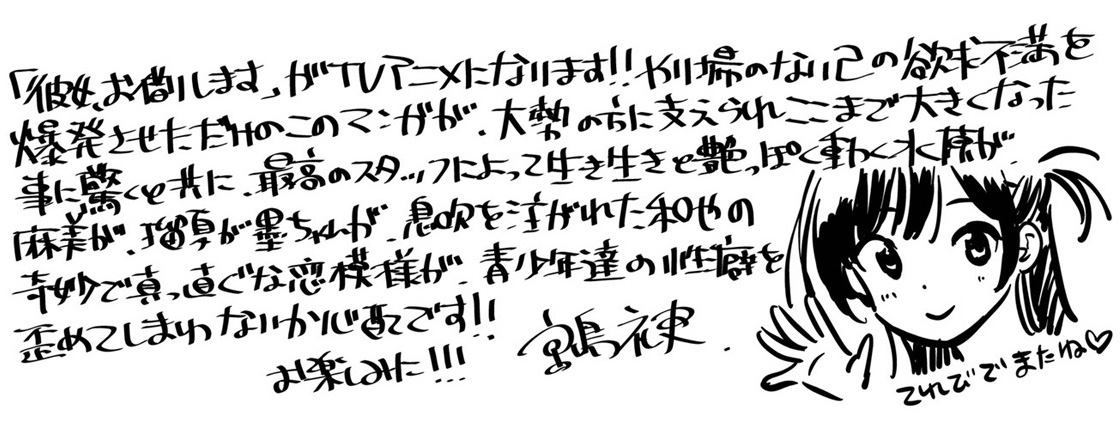 「彼女、お借りします」がTVアニメになります!!やり場のない己の欲求不満を
爆発させただけのこのマンガが、大勢の方に支えられここまで大きくなった
事に驚くと共に、最高のスタッフによって生き生きと艶っぽく動く水原が、
麻美が、瑠夏が墨ちゃんが、息吹を注がれた和也の
奇妙で真っ直ぐな恋模様が、青少年達の性癖を
歪めてしまわないか心配です!!
お楽しみに!!!
宮島礼吏.
てれびでまたね♡